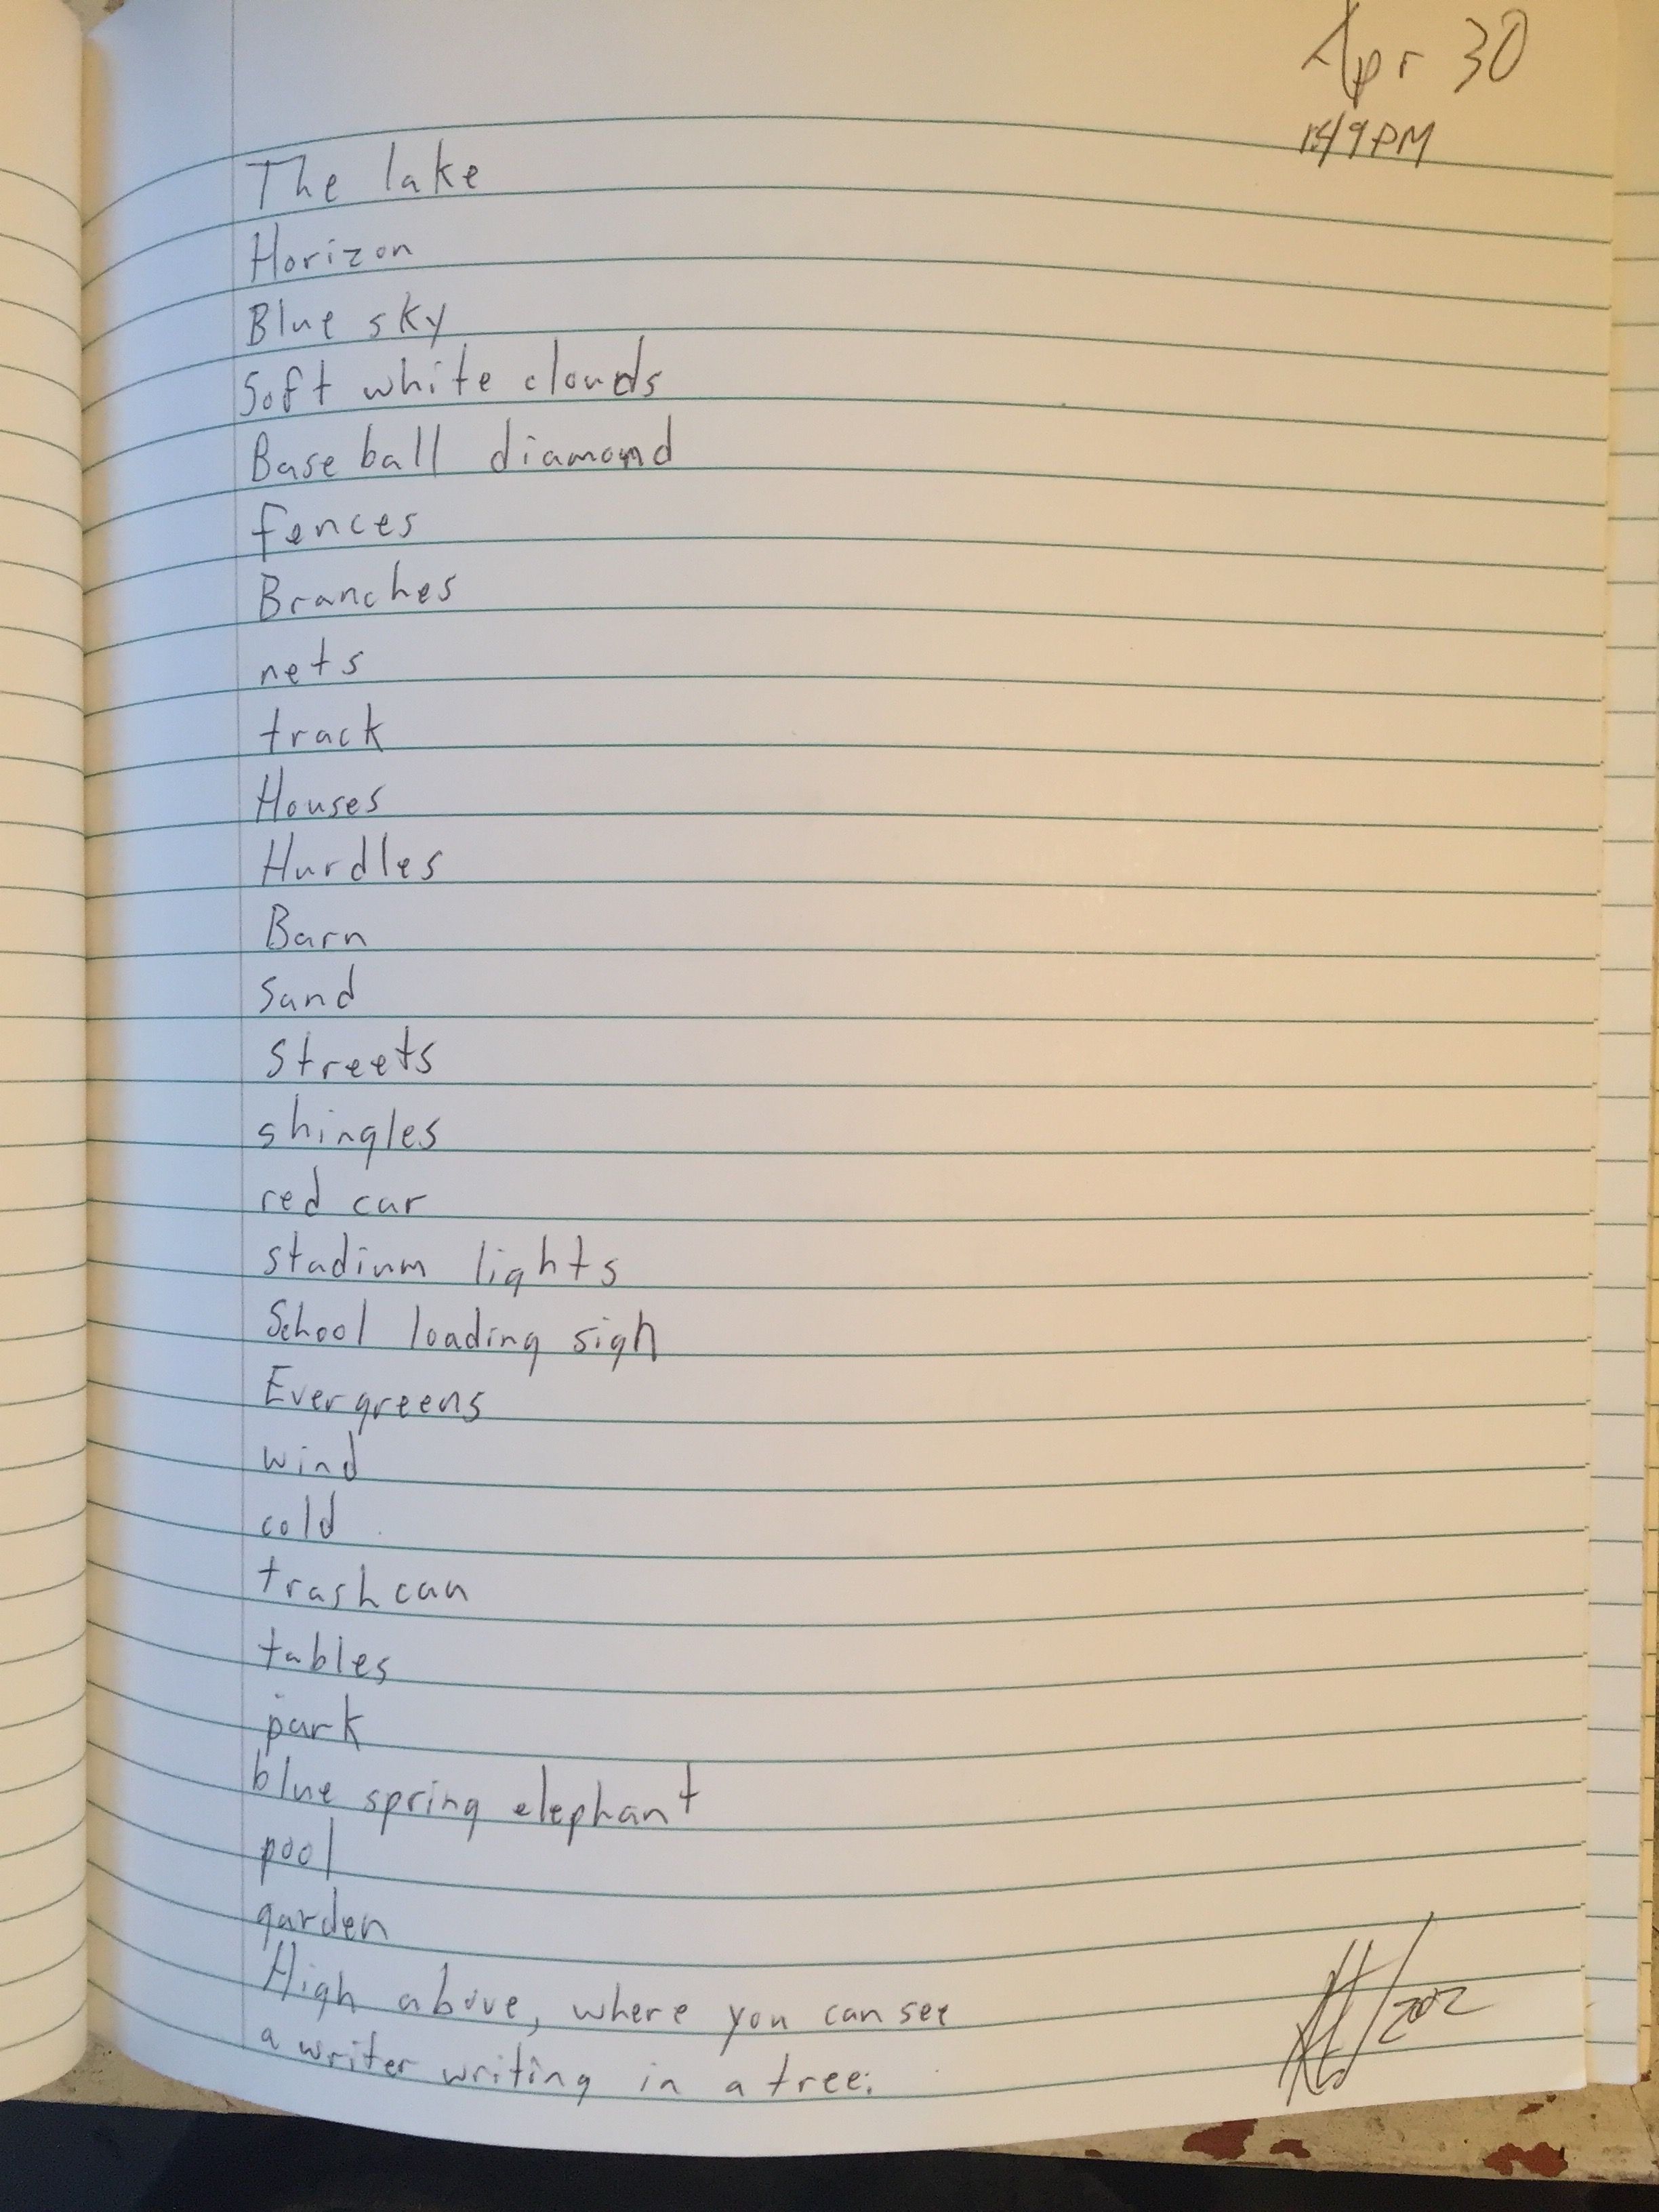 Apr 30
The lake
Horizon
Blue sky
Soft white clouds
Baseball diamond
fences
Branches
nets
track
Houses
Hurdles
Barn
sand
streets
shingles
red car
stadium lights
School loading sign
Evergreens
wind
cold
trashcan
tables
park
blue spring elephant
pool
garden
High above, where you can see
a writer writing in a tree.